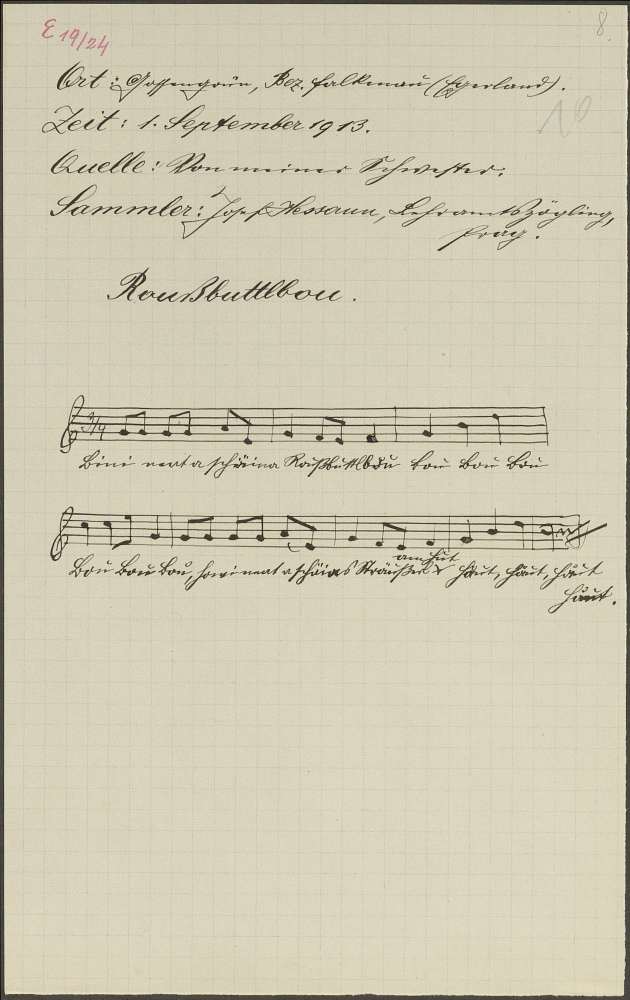 E 19/24
8.
10
Ort: Gossengrün, Bez. Falkenau (Egerland).
Zeit: 1. September 1913.
Quelle: Von meiner Schwester.
Sammler: Josef Hessaun, Lehramtszögling,
Prag.
Roußbuttlbou.
3/4
Bini nent a schäina Raußbuttlbou bou bou bou
am Hut
Bou bou bou, ho i nent a schäins Sträußerl haut, haut, haut
haut.